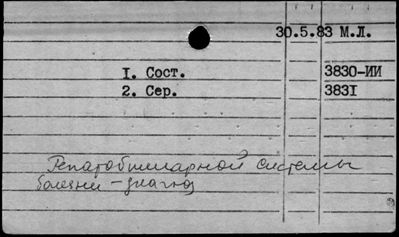 30.5.83 М.Л.
1. Сост. 3830-ИИ
2. Сер. 3831
Гепатобилиарной системы
болезни - диагноз